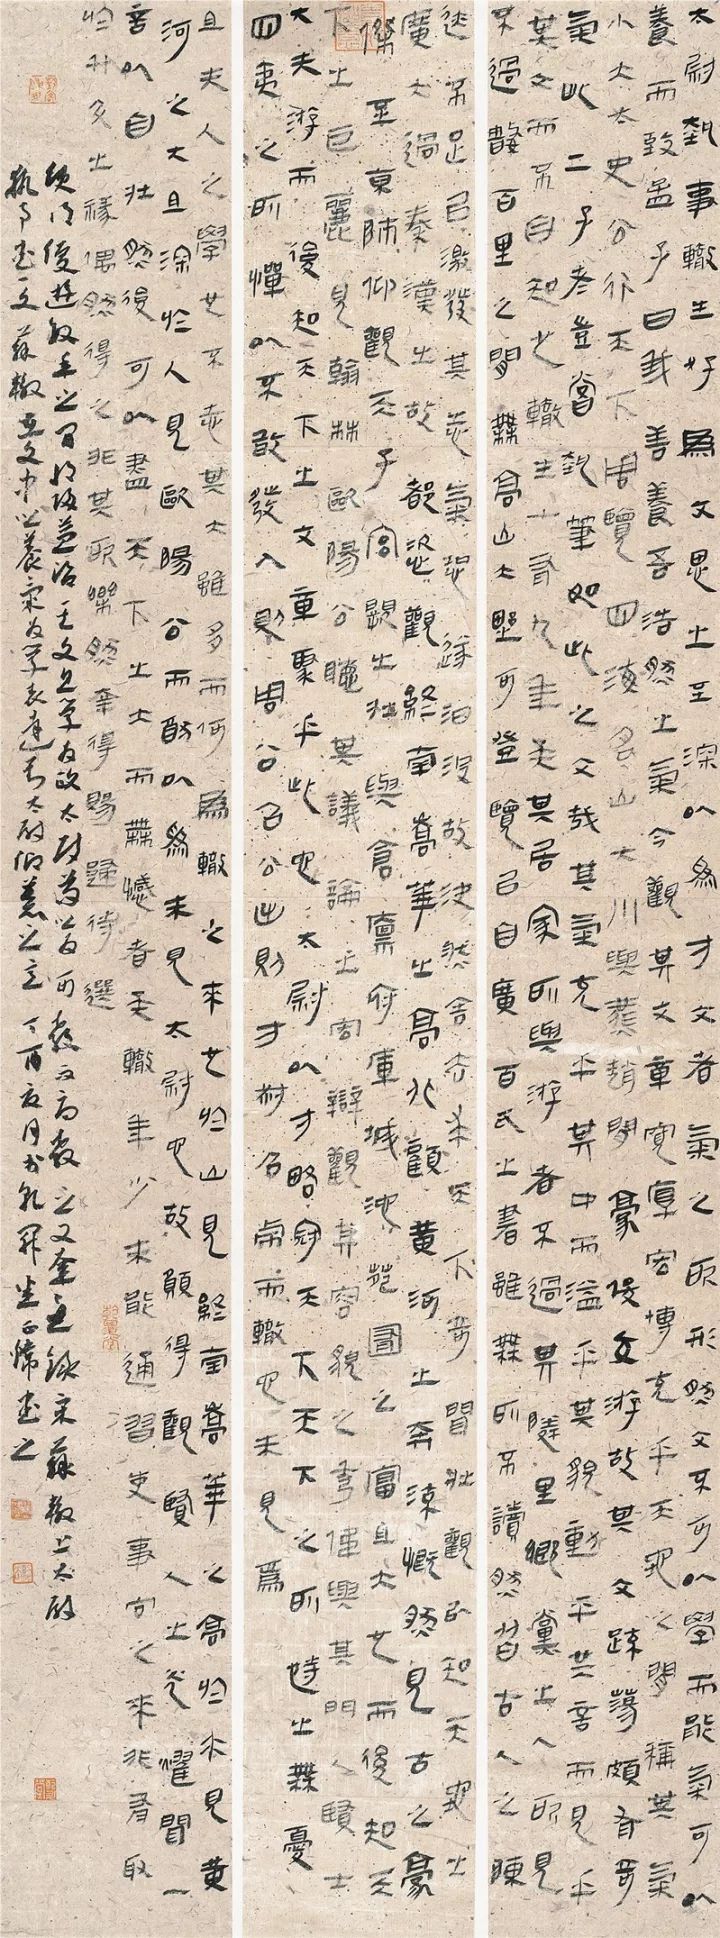 太尉執事轍生好為文思之至深以為才文者氣之所形然文不可以學而能氣可以
養而致孟子曰我善養吾浩然之氣今觀其文章寬厚宏博充乎天地之間稱其氣
小大太史公行天下周覽四海名山大川與燕趙間豪俊交游故其文疏蕩頗有奇
氣此二子者豈嘗執筆如此之文哉其氣充乎其中而溢乎其貌動乎其言而見乎
其文而不自知也轍生十有九年矣其居家所與游者不過其鄰里鄉黨之人所見
不過數百里之間無高山大野可登覽以自廣百氏之書雖無所不讀然皆古人之陳
迹不足以激發其志氣恐遂汩沒故決然舍去求天下奇聞壯觀以知天地之
廣大過秦漢之故都恣觀終南嵩華之高北顧黃河之奔流慨然見古之豪
傑至京師仰觀天子宮闕之壯與倉廩府庫城池苑囿之富且大也而後知天
下之巨麗見翰林歐陽公聽其議論之宏辯觀其容貌之秀偉與其門人賢士
大夫游而後知天下之文章聚乎此也太尉以才略冠天下天下之所恃之無憂
四夷之所憚以不敢發入則周公召公出則方叔召虎而轍也未見焉
且夫人之學也不志其大雖多而何為轍之來也於山見終南嵩華之高於水見黃
河之大且深於人見歐陽公而猶以為未見太尉也故願得觀賢人之光耀聞一
言以自壯然後可以盡天下之大而無憾者矣轍年少未能通習吏事向之來非有取
於升斗之祿偶然得之非其所樂然幸得賜歸待選
使得優遊數年之間將以益治其文且學為政太尉苟以為可教而辱教之又幸矣錄宋蘇轍上太尉
執事書一文蘇轍文中以養氣為學太尉仰慕之意丁酉夏月書之